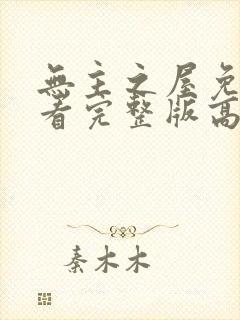 無主之屋免
看完整版高
秦木木